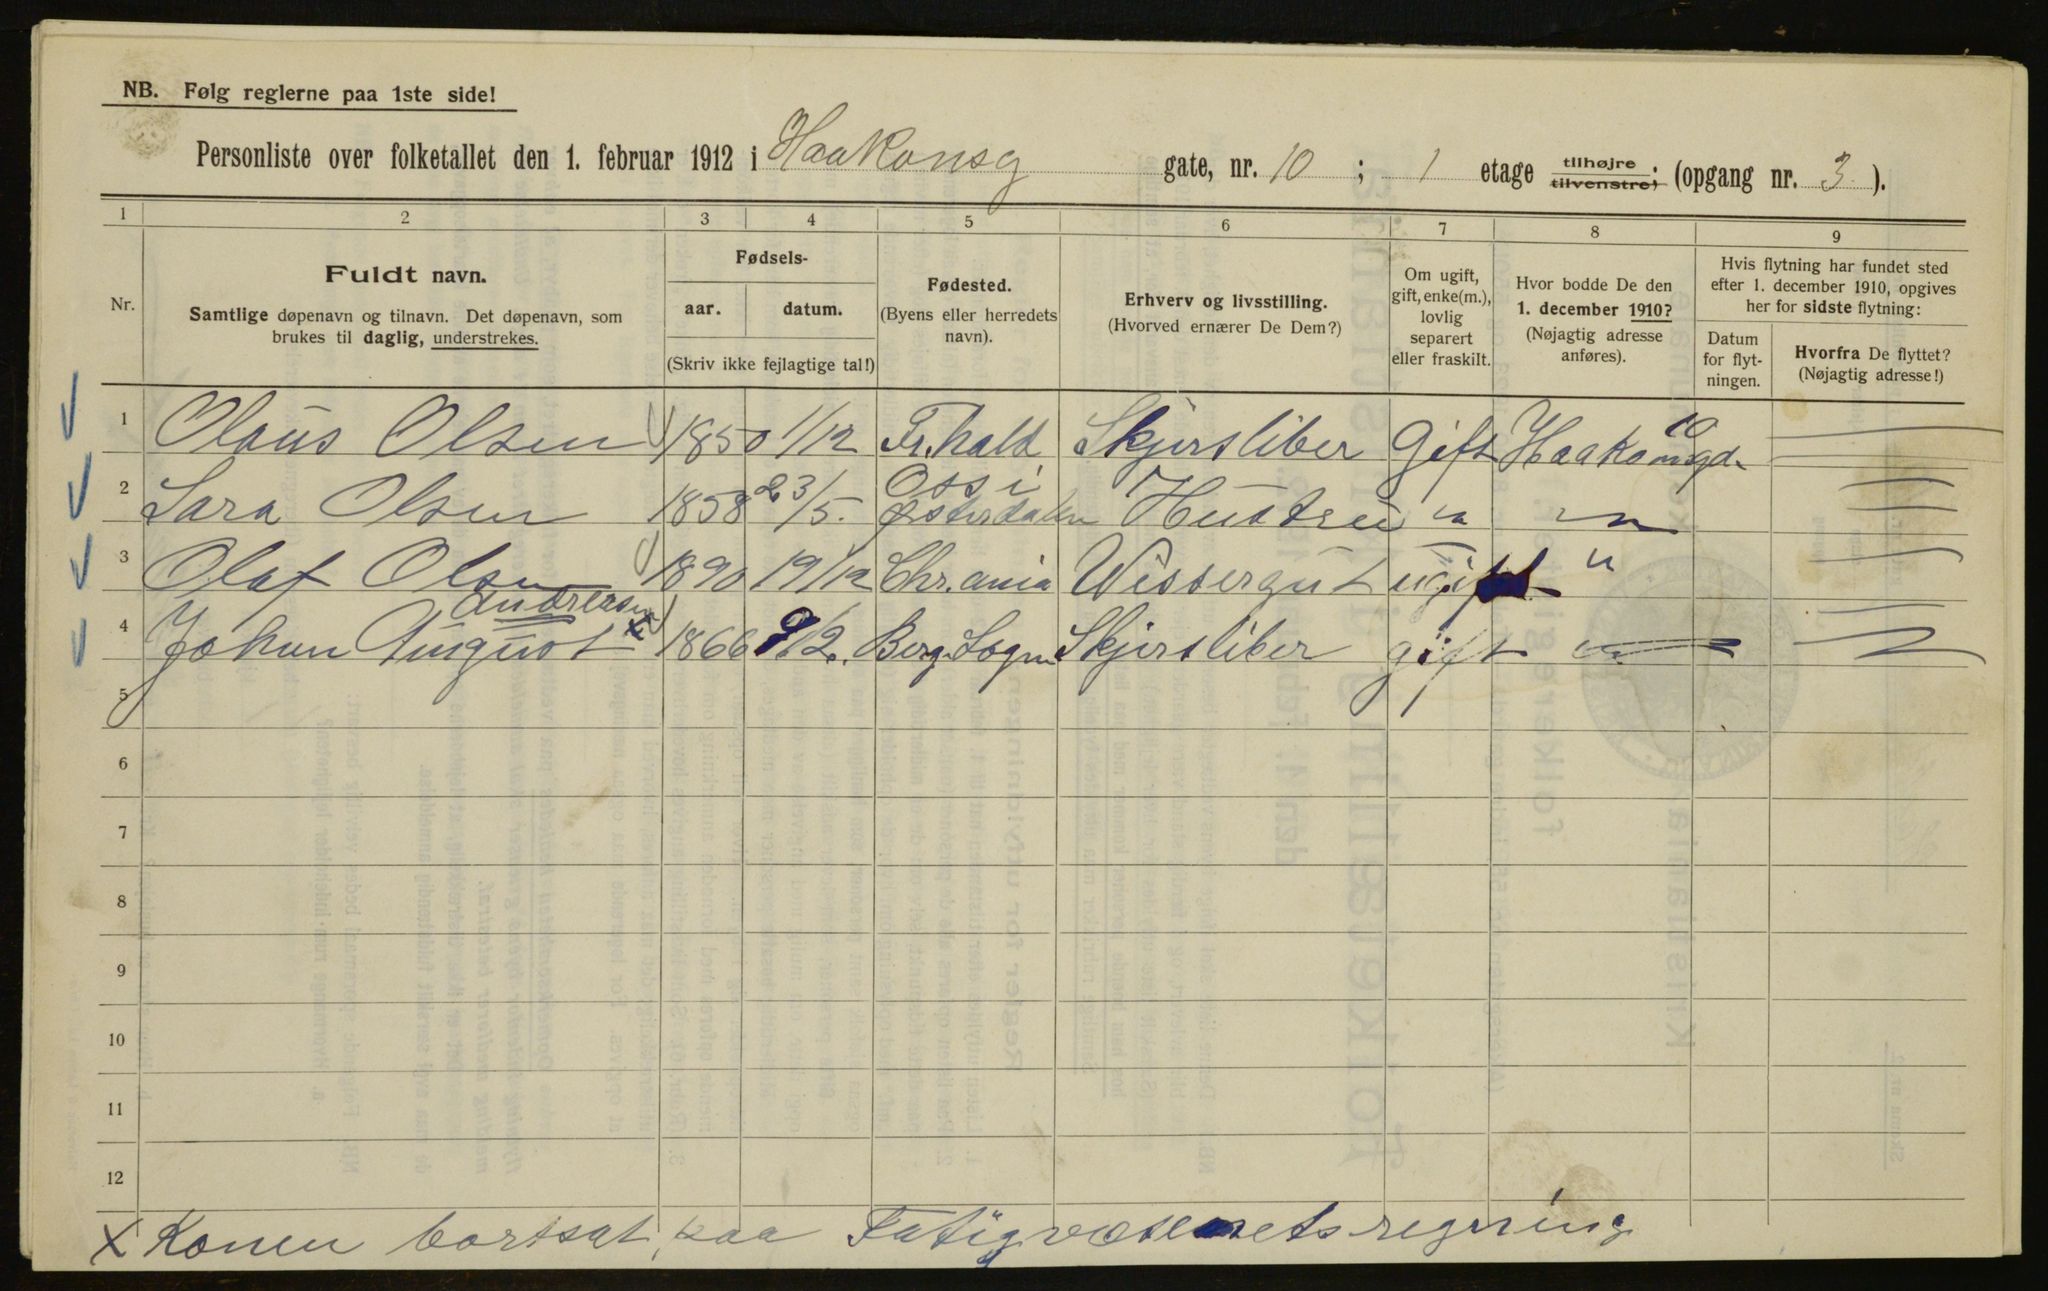 NB. Følg reglerne paa 1ste side!
Personliste over folketallet den 1. februar 1912 i Haakonsg gate, nr. 10 ; 1 etage tilhøjre tilvenstre; (opgang nr. 3 ).
1 2 3 4 5 6 7 8 9
Nr.
Fuldt navn.
Samtlige døpenavn og tilnavn. Det døpenavn, som
brukes til daglig, understrekes.
Fødsels-
aar. datum.
(Skriv ikke fejlagtige tal!)
Fødested.
(Byens eller herredets
navn).
Erhverv og livsstilling.
(Hvorved ernærer De Dem?)
Om ugift,
gift, enke(m.),
lovlig
separert
eller fraskilt.
Hvor bodde De den
1. december 1910?
(Nøjagtig adresse
anføres).
Hvis flytning har fundet sted
efter 1. december 1910, opgives
her for sidste flytning:
Datum
for flyt-
ningen.
Hvorfra De flyttet?
(Nøjagtig adresse!)
1 Olaus Olsen 1850 1/12 Fr.hald Skjersliber Gift Haakonsgd. 10
2 Sara Olsen 1858 23/5. Oss i Østerdalen Hustru " "
3 Olaf Olsen 1890 19/12 Chr.ania Wissergut ugift "
Andreasen
4 Johan August x 1866 9/2. Berg Sogn Skjersliber gift "
5
6
7
8
9
10
11
12
x Konen bortsat paa Fatigvæsenets regning